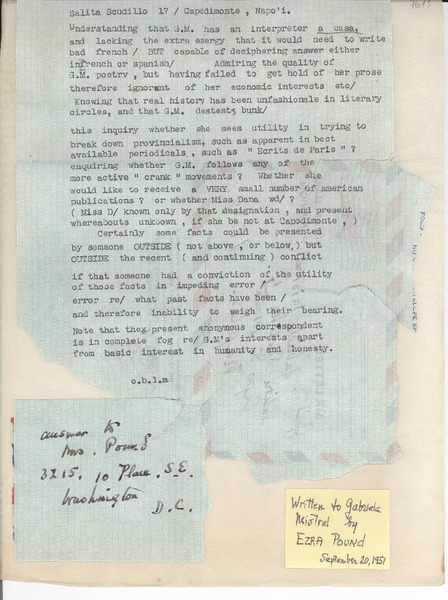 1615
Salita Scudillo 17 / Capodimonte , Napo'i.
Understanding that G.M. has an interpreter a casa,
and lacking the extra energy that it would need to write
bad french / BUT capable of deciphering answer either
infrench or spanish/ Admiring the quality of
G.M. poetry, but having failed to get hold of her prose
therefore ignorant of her economic interests etc/
Knowing that real history has been unfashionale in literary
circles, and that G.M. destests bunk/
this inquiry whether she sees utility in trying to
break down provincialism, such as apparent in best
available periodicals, such as " Ecrits de Paris " ?
enquiring whether G.M. follows any of the
more active " crank " movements ? Whether she
would like to receive a VERY small number of american
publications ? or whether Miss Dana wd/ ?
( Miss D/ known only by that designation , and present
whereabouts unknown , if she be not at Capodimonte , )
Certainly some facts could be presented
by someone OUTSIDE ( not above , or below,) but
OUTSIDE the recent ( and continuing ) conflict
if that someone had a conviction of the utility
of those facts in impeding error /
error re/ what past facts have been /
and therefore inability to weigh their bearing.
Note that the present anonymous correspondent
is in complete fog re/ G.M's interests apart
from basic interest in humanity and honesty.
o.b.l.m
answer to
Mrs. Pound
3215. 10 Place. S.E.
Washington
D.C.
Written to Gabriela
Mistral by
EZRA POUND
September 20, 1951